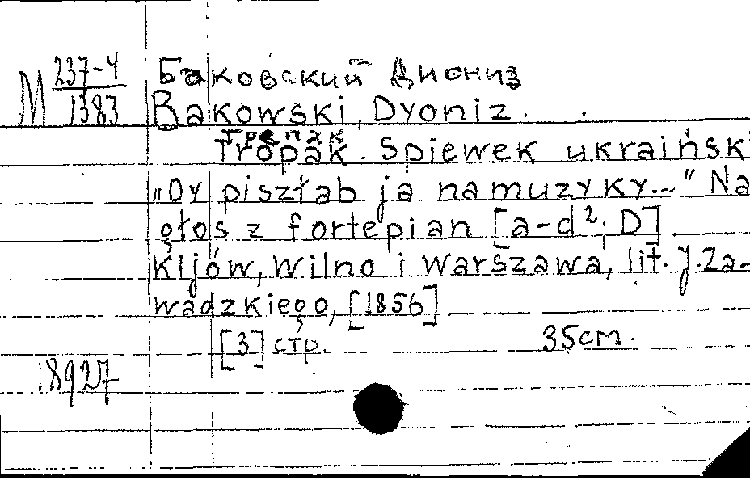 М 237-4/1383
Баковский Диониз
Bakowski, Dyoniz.
Трепак
Tropak. Spiewek ukraiński
„Oy piszłab ja na muzyky..." Na
głos z fortepian [a-d². D].
Kijów, Wilno i Warszawa, lit. J. Za-
wadzkiego, [1856]
[3] стр. 35 cm.
18927